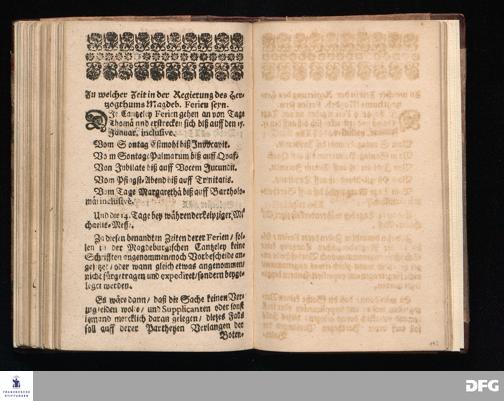 Zu welcher Zeit in der Regierung des Her-
zogthums Magdeb. Ferien seyn.
DIe Cantzeley Ferien gehen an von Tage
Thomä und erstrecken sich biß auff den 15.
Januar. inclusive.
Vom Sontag Estomihi biß Invocavit.
Vom Sontage Palmarum biß auff Quas.
Von Jubilate biß auff Vocem Jucundit.
Vom Pfingst-Abend biß auff Trinitatis.
Vom Tage Margarethä biß auff Bartholo-
mäi inclusive.
Und die 14. Tage bey währender Leipziger Mi-
chaelis-Meß.
Zu diesen benandten Zeiten derer Ferien / sol-
len in der Magdeburgischen Cantzeley keine
Schrifften angenommen / noch Vorbescheide an-
gesetzet / oder wann gleich etwas angenommen /
nicht fürgetragen und expediret / sondern beyge-
leget werden.
Es wäre dann / daß die Sache keinen Ver-
zug leiden wolte / und Supplicanten oder sonst
jemand mercklich daran gelegen / dieses Fals
soll auff derer Partheyen Verlangen der
Boten-
FRANCKESCHE
STIFTUNGEN
DFG